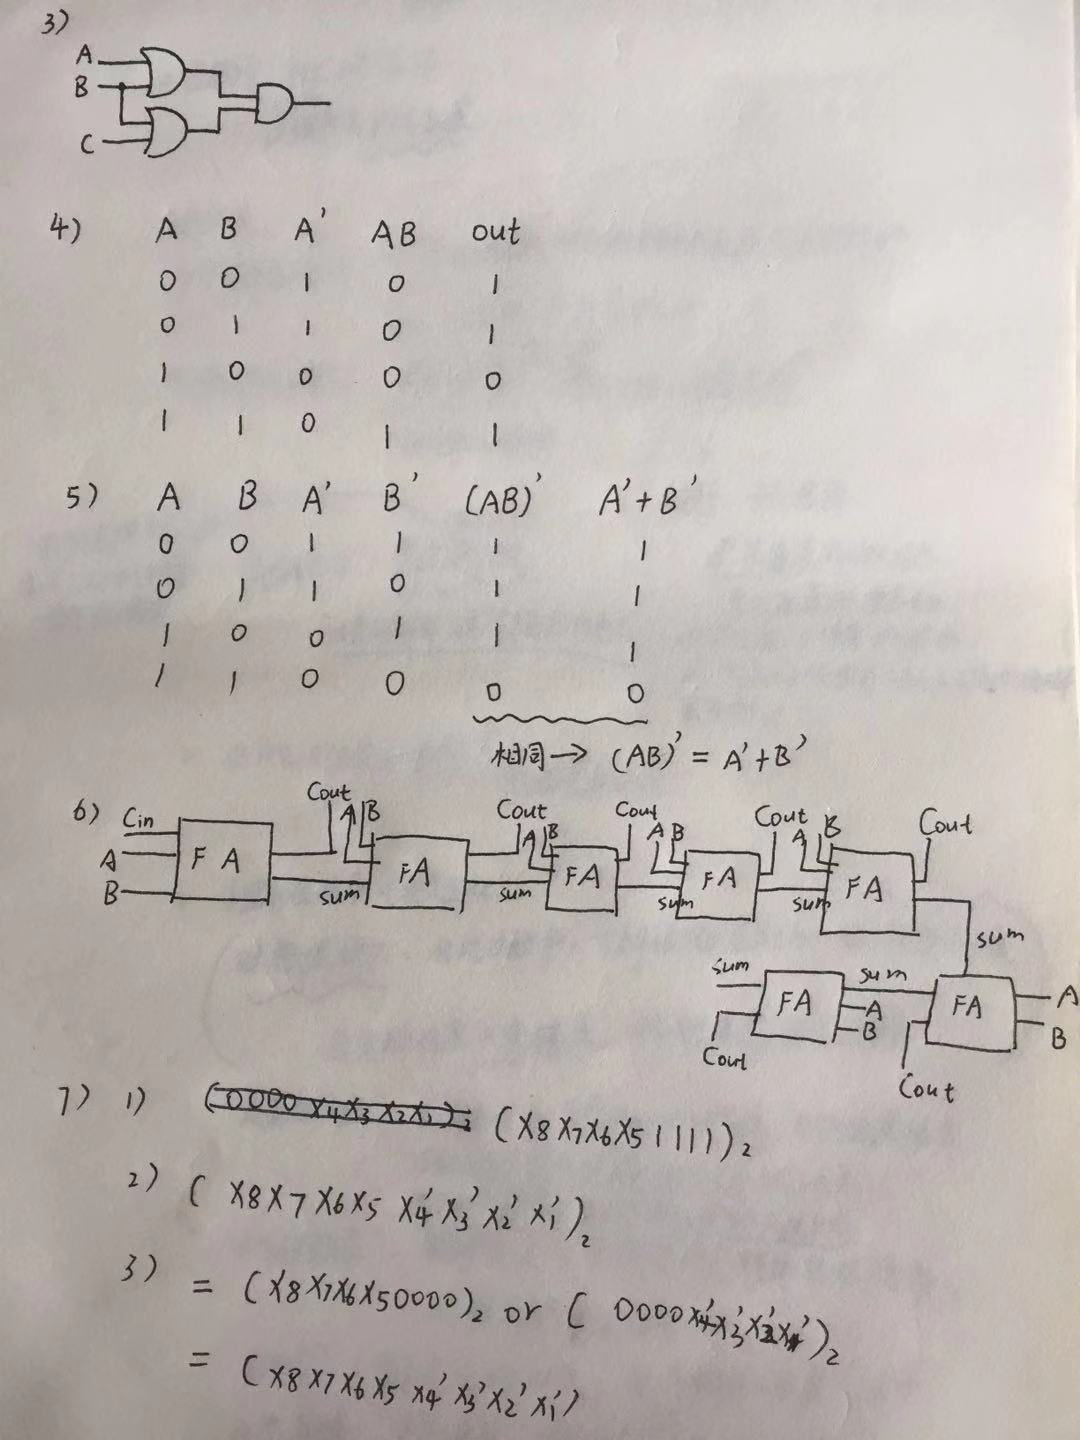 3)
A
B
C
4) A B A' AB out
0 0 1 0 1
0 1 1 0 1
1 0 0 0 0
1 1 0 1 1
5) A B A' B' (AB)' A'+B'
0 0 1 1 1 1
0 1 1 0 1 1
1 0 0 1 1 1
1 1 0 0 0 0
相同→ (AB)' = A'+B'
6) Cin A B FA Cout sum
A B FA Cout sum
A B FA Cout sum
A B FA Cout sum
A B FA Cout sum
sum Cout FA A B sum
FA A B Cout
7) 1) (0000X4X3X2X1)2 (X8X7X6X51111)2
2) (X8X7X6X5X4'X3'X2'X1')2
3) = (X8X7X6X50000)2 or (0000X4'X3'X2'X1')2
= (X8X7X6X5X4'X3'X2'X1')